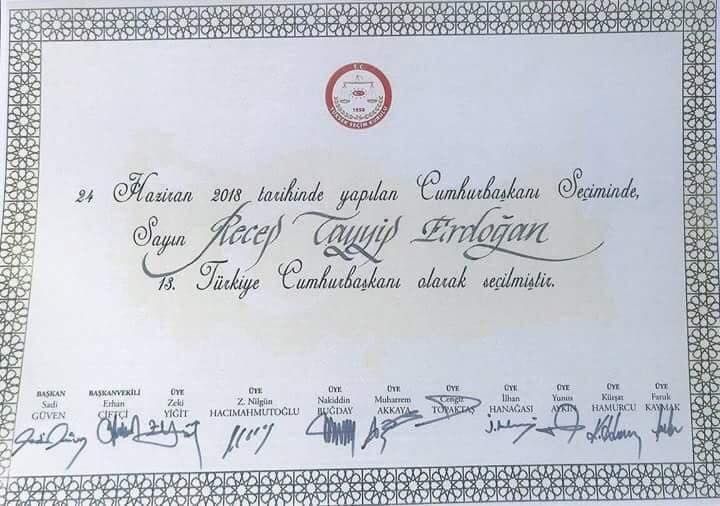 T.C.
YÜKSEK SEÇİM KURULU
1950
24 Haziran 2018 tarihinde yapılan Cumhurbaşkanı Seçiminde,
Sayın Recep Tayyip Erdoğan
13. Türkiye Cumhurbaşkanı olarak seçilmiştir.
BAŞKAN BAŞKANVEKİLİ ÜYE ÜYE ÜYE ÜYE ÜYE ÜYE ÜYE ÜYE ÜYE
Sadi Erhan Zeki Z. Nilgün Nakiddin Muharrem Cengiz İlhan Yunus Kürşat Faruk
GÜVEN ÇİFTÇİ YİĞİT HACIMAHMUTOĞLU BUĞDAY AKKAYA TOPAKTAŞ HANAĞASI AYKIN HAMURCU KAYMAK